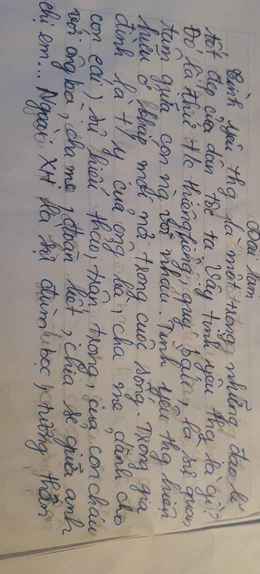 Bài làm
Tình yêu thg là một trong những đạo lí
tốt đẹp của dân tộc ta. Vậy tình yêu thg là gì?
Đó là thứ t/c thiêng liêng, quý báu, là sự quan
tâm giữa con ng với nhau. Tình yêu thg hiện
hữu ở khắp mọi nơi trong cuộc sống. Trong gia
đình là t/y của ông bà, cha mẹ dành cho
con cái, sự hiếu thảo, trân trọng, của con cháu
với ông bà, cha mẹ, thân thiết, chia sẻ giữa anh
chị em... Ngoài XH là sự đùm bọc, nhường nhịn